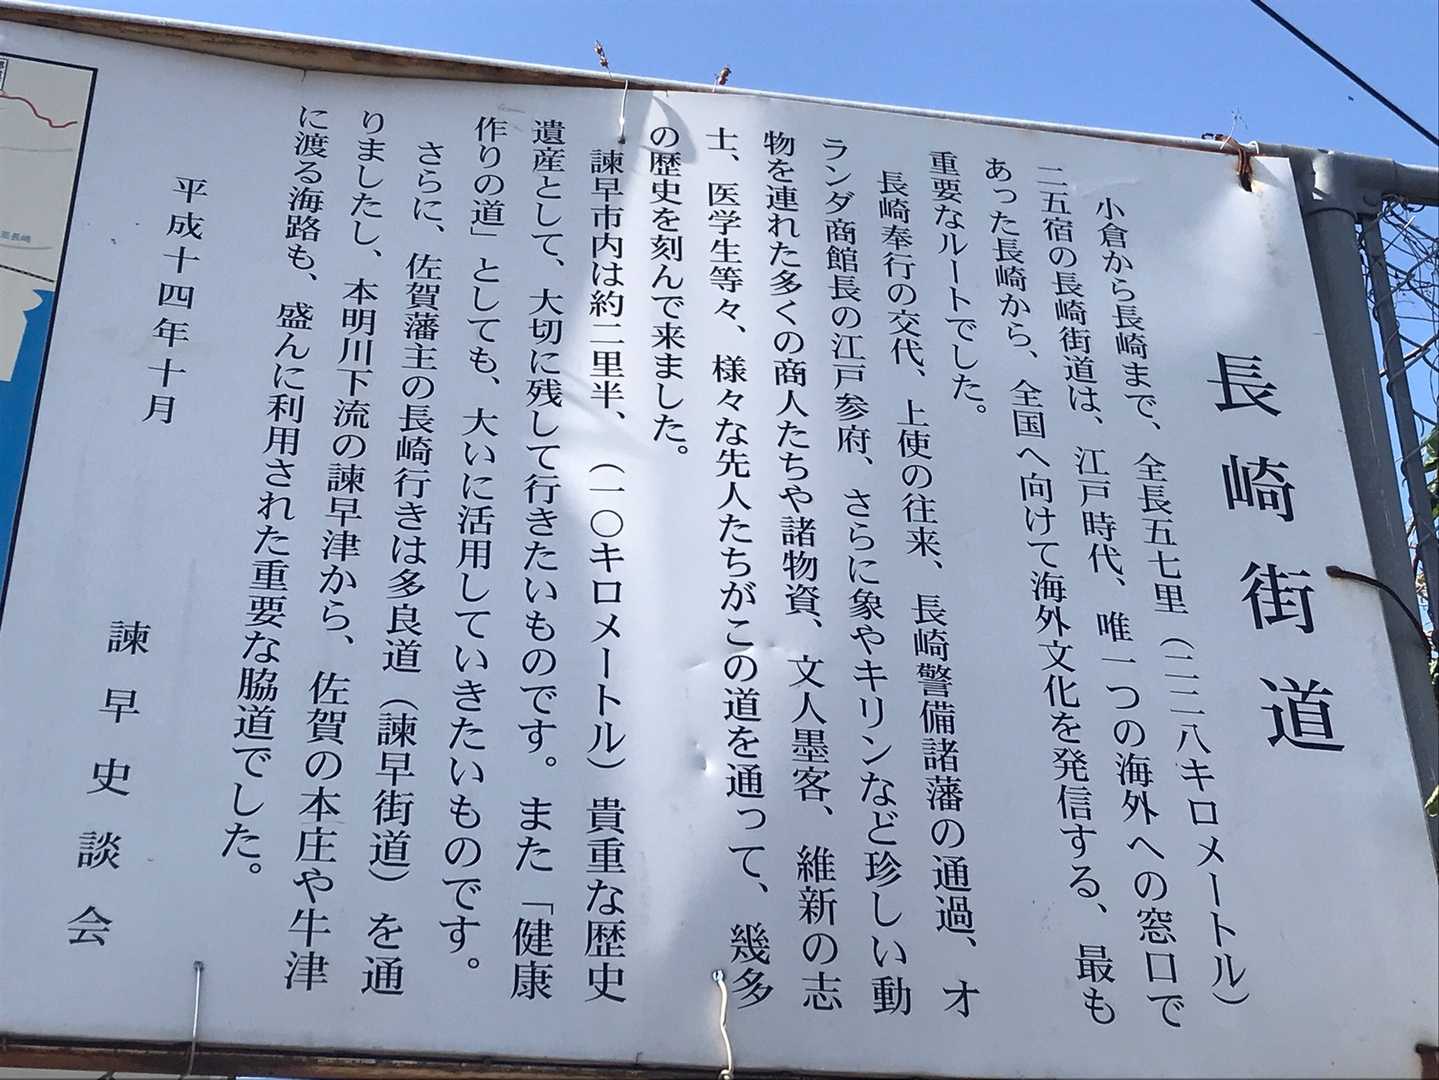 長崎街道
小倉から長崎まで、全長五七里（二二八キロメートル）
二五宿の長崎街道は、江戸時代、唯一つの海外への窓口で
あった長崎から、全国へ向けて海外文化を発信する、最も
重要なルートでした。
長崎奉行の交代、上使の往来、長崎警備諸藩の通過、オ
ランダ商館長の江戸参府、さらに象やキリンなど珍しい動
物を連れた多くの商人たちや諸物資、文人墨客、維新の志
士、医学生等々、様々な先人たちがこの道を通って、幾多
の歴史を刻んで来ました。
諫早市内は約二里半、（一〇キロメートル）貴重な歴史
遺産として、大切に残して行きたいものです。また「健康
作りの道」としても、大いに活用していきたいものです。
さらに、佐賀藩主の長崎行きは多良道（諫早街道）を通
りましたし、本明川下流の諫早津から、佐賀の本庄や牛津
に渡る海路も、盛んに利用された重要な脇道でした。
平成十四年十月
諫早史談会